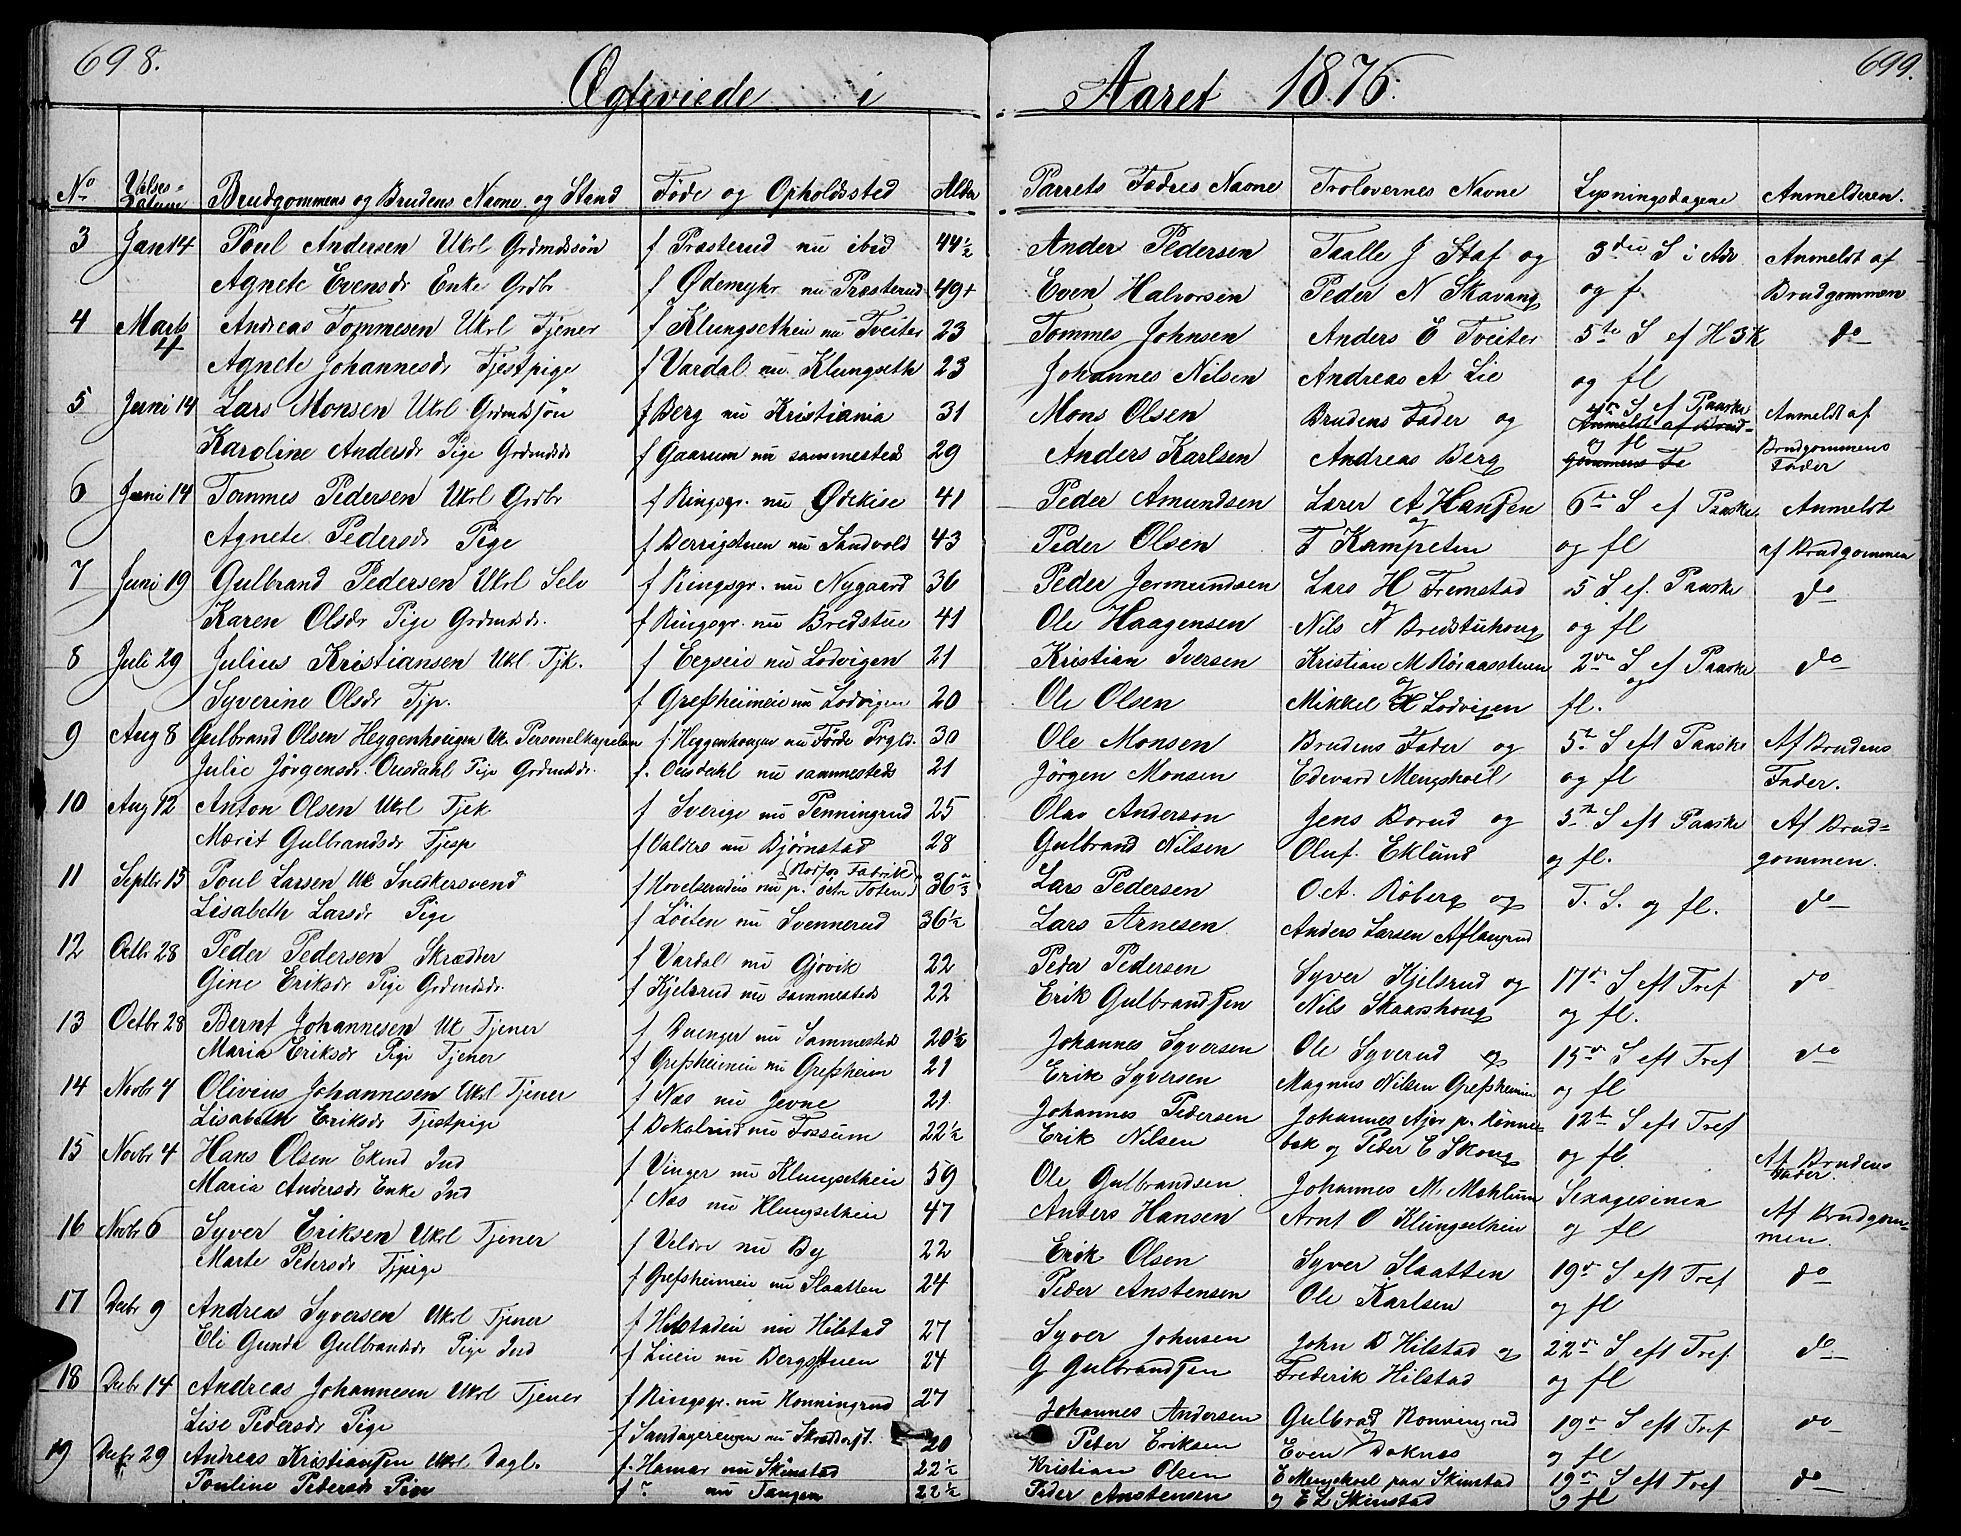 698.
699.
Ægteviede i Aaret 1876.
No Vielses-Datum Brudgommens og Brudens Navne og Stand Føde og Opholdssted Alder Parrets Fædres Navne Trolovernes Navne Lysningsdagene Anmelderen.
3 Jan 14 Poul Andersen Ukrl Grdmdssøn f Præsterud nu ibid 44½ Ander Pedersen Taalle J Staf og 3die S i Adv Anmeldt af
Agnete Evensdr Enke Grdbr f Ødemyhr nu Præsterud 49+ Even Halvorsen Peder N Skavang og f Brudgommen
4 Marts 4 Andreas Tommesen Ukrl Tjener f Klungsetheie nu Tveiter 23 Tommes Johnsen Anders E Tveiter 5te S ef H 3 K do
Agnete Johannesdr Tjestpige f Vardal nu Klungseth 23 Johannes Nilsen Andreas A Lie og fl
5 Juni 14 Lars Monsen Ukrl Grdmdssøn f Berg nu Kristiania 31 Mons Olsen Brudens Fader og S ef Paaske Anmeldt af
Karoline Andersdr Pige Grdmdsdr f Gaarum nu sammesteds 29 Anders Karlsen Andreas Berg og fl Brudgommens Fader
6 Juni 14 Tommes Pedersen Ukrl Grdbr f Ringsgr. nu Ødekise 41 Peder Amundsen Lærer A Hansen og 6te S ef Paaske Anmeldt
Agnete Pedersdr Pige f Berrigstuen nu Sandvold 43 Peder Olsen T Kampeten og fl af Brudgommen
7 Juni 19 Gulbrand Pedersen Ukrl Selv f Ringsgr. nu Nygaard 36 Peder Jermundsen Lars H Fremstad og 5 S ef. Paaske do
Karen Olsdr Pige Grdmdsdr. f Ringsgr. nu Bredstue 41 Ole Haagensen Nils N Bredstuhoug og fl
8 Juli 29 Julius Kristiansen Ukl Tjk. f Eegseie nu Lodvigen 21 Kristian Iversen Kristian M Röraasstuen og 2den S ef Paaske og do
Syverine Olsdr Tjp. f Grefsheimeie nu Lodvigen 20 Ole Olsen Mikkel H Lodvigen fl.
9 Aug 8 Gulbrand Olsen Heggenhougen Uk Personelkapelan f Heggenhougen nu Førde Prgld. 30 Ole Monsen Brudens Fader og 5te S eft Paaske Af Brudens
Julie Jörgensdr. Ousdahl Pige Grdmdsdr. f. Ousdahl nu sammesteds 21 Jörgen Monsen Edevard Mengshoel og fl Fader.
10 Aug 12 Anton Olsen Ukrl Tjek f Sverige nu Penningrud 25 Olav Anderson Jens Borud og 5te S eft Paaske Af Brud=
Mærit Gulbrandsdr Tjesp f Valders nu Bjørnstad 28 Gulbrand Nilsen Oluf. Eklund og fl. gommen.
11 Septbr 15 Poul Larsen Uk Snedkersvend f Hovelsrudeie nu p. Rosfos Fabrik östre Toten 36 Lars Pedersen O. A. Röberg og T. S. og fl. do
Lisabeth Larsdr Pige f Löiten nu Svennerud 36½ Lars Arnesen Anders Larsen Aflangrud
12 Octbr 28 Peder Pedersen Skrædder f Vardal nu Gjovik 22 Peder Pedersen Syver Kjelsrud og 17de S eft Tref do
Gine Eriksdr Pige Grdmdsdr. f Kjelsrud nu sammesteds 22 Erik Gulbrandsen Nils Skaarshoug og fl.
13 Octbr 28 Bernt Johannesen Uk Tjener f Dvenger nu Sammesteds 20½ Johannes Syversen Ole Syverud og 15de S eft Tref do
Maria Eriksdr Pige Tjener f Grefsheimeie nu Grefsheim 21 Erik Syversen Magnus Nilsen Grefsheimeie og fl
14 Novbr 4 Olivius Johannesen Ukrl Tjener f Næs nu Jevne 21 Johannes Pedersen Johannes Ajer p. Rønne- 12te S eft Tref
Lisabeth Eriksdr Tjestpige f Bokalrud nu Fossum 22½ Erik Nilsen bæk og Peder E Skoug og fl. Af Brudens Fader.
15 Novbr 4 Hans Olsen Ekmd Ind f Vinger nu Klungsetheie 59 Ole Gulbrandsen Johannes M. Mæhlum Sexagesima Af Brudgom=
Maria Andersdr Enke Ind f Næs nu Klungsetheie 47 Anders Hansen Arnt O Klungsetheie og fl men.
16 Novbr 6 Syver Eriksen Ukrl Tjener f Veldre nu By 22 Erik Olsen Syver Slaatten 19de S eft Tref do
Marte Pedersdr Tjpige f Grefsheimeie nu Slaatten 24 Peder Anstensen Ole Karlsen og fl
17 Decbr 9 Andreas Syversen Ukrl Tjener f Hilstadeie nu Hilstad 27 Syver Johnsen John D Hilstad og 22de S eft Tref. do
Eli Gunda Gulbrandsdr Pige Ind f Lieeie nu Bergstuen 24 G Gulbrandsen Frederik Hilstad og fl
18 Decbr 14 Andreas Johannesen Ukrl Tjener f Ringsgr. nu Konningrud 27 Johannes Andersen Gulbrad Konningrud og 19de S eft Tref do
Lise Pedersdr Pige f Sandagerengen nu Skrædderst. 20 Peter Eriksen Even Doknæs og fl
19 Decbr 29 Andreas Kristiansen Ukrl Dagl. f. Hamar nu Skinstad 22½ Kristian Olsen E Mengshoel paa Skinstad 19de S eft Tref do
Pouline Pedersdr Pige f " nu Tangen 22½ Peder Anstensen og E L Skinstad og fl